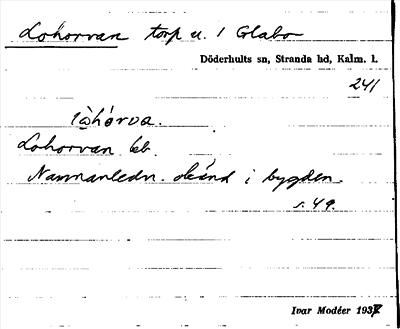 Lohorvan torp u. 1 Glabo
Döderhults sn, Stranda hd, Kalm. l.
241
lòhórva.
Lohorvan kb.
Namnanledn. okänd i bygden.
s. 49.
Ivar Modéer 1937